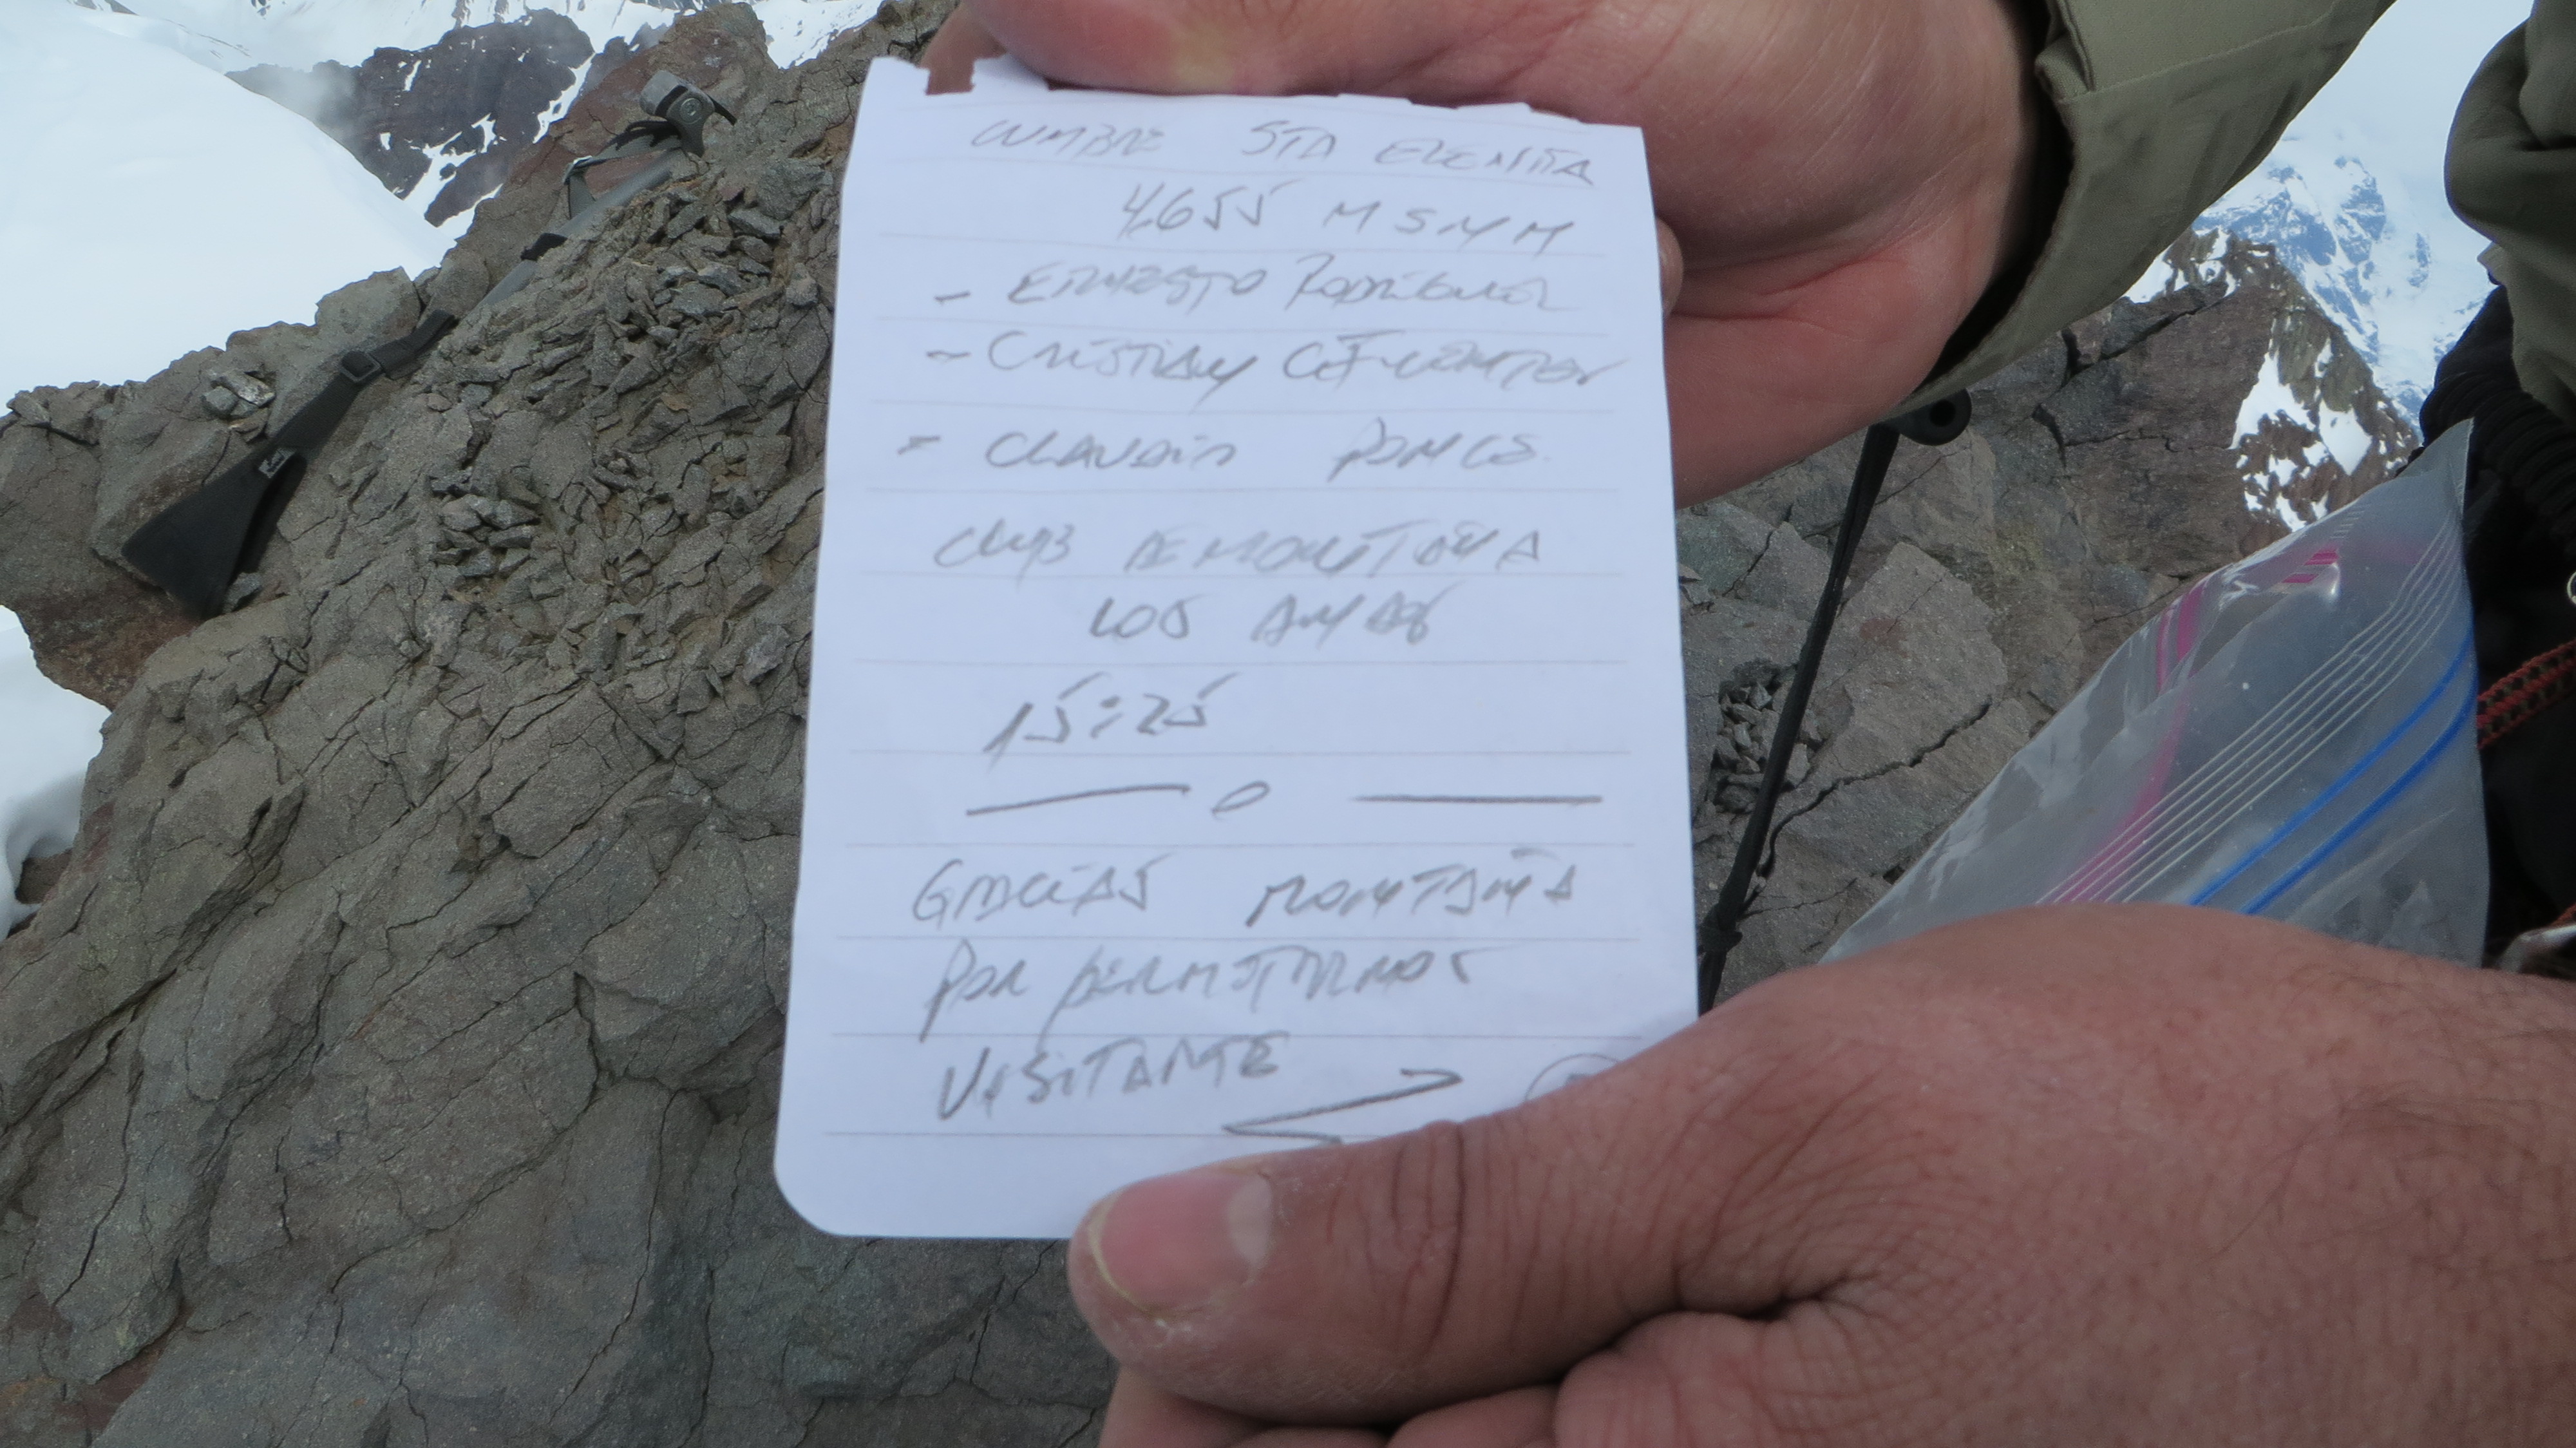 CUMBRE STA ELENITA
4.655 MSNM
- ERNESTO RODRIGUEZ
- CRISTIAN CIFUENTES
- CLAUDIO PONCE.
CLUB DE MONTAÑA
LOS ANDES
15:25
— o —
GRACIAS MONTAÑA
POR PERMITIRNOS
VISITARTE